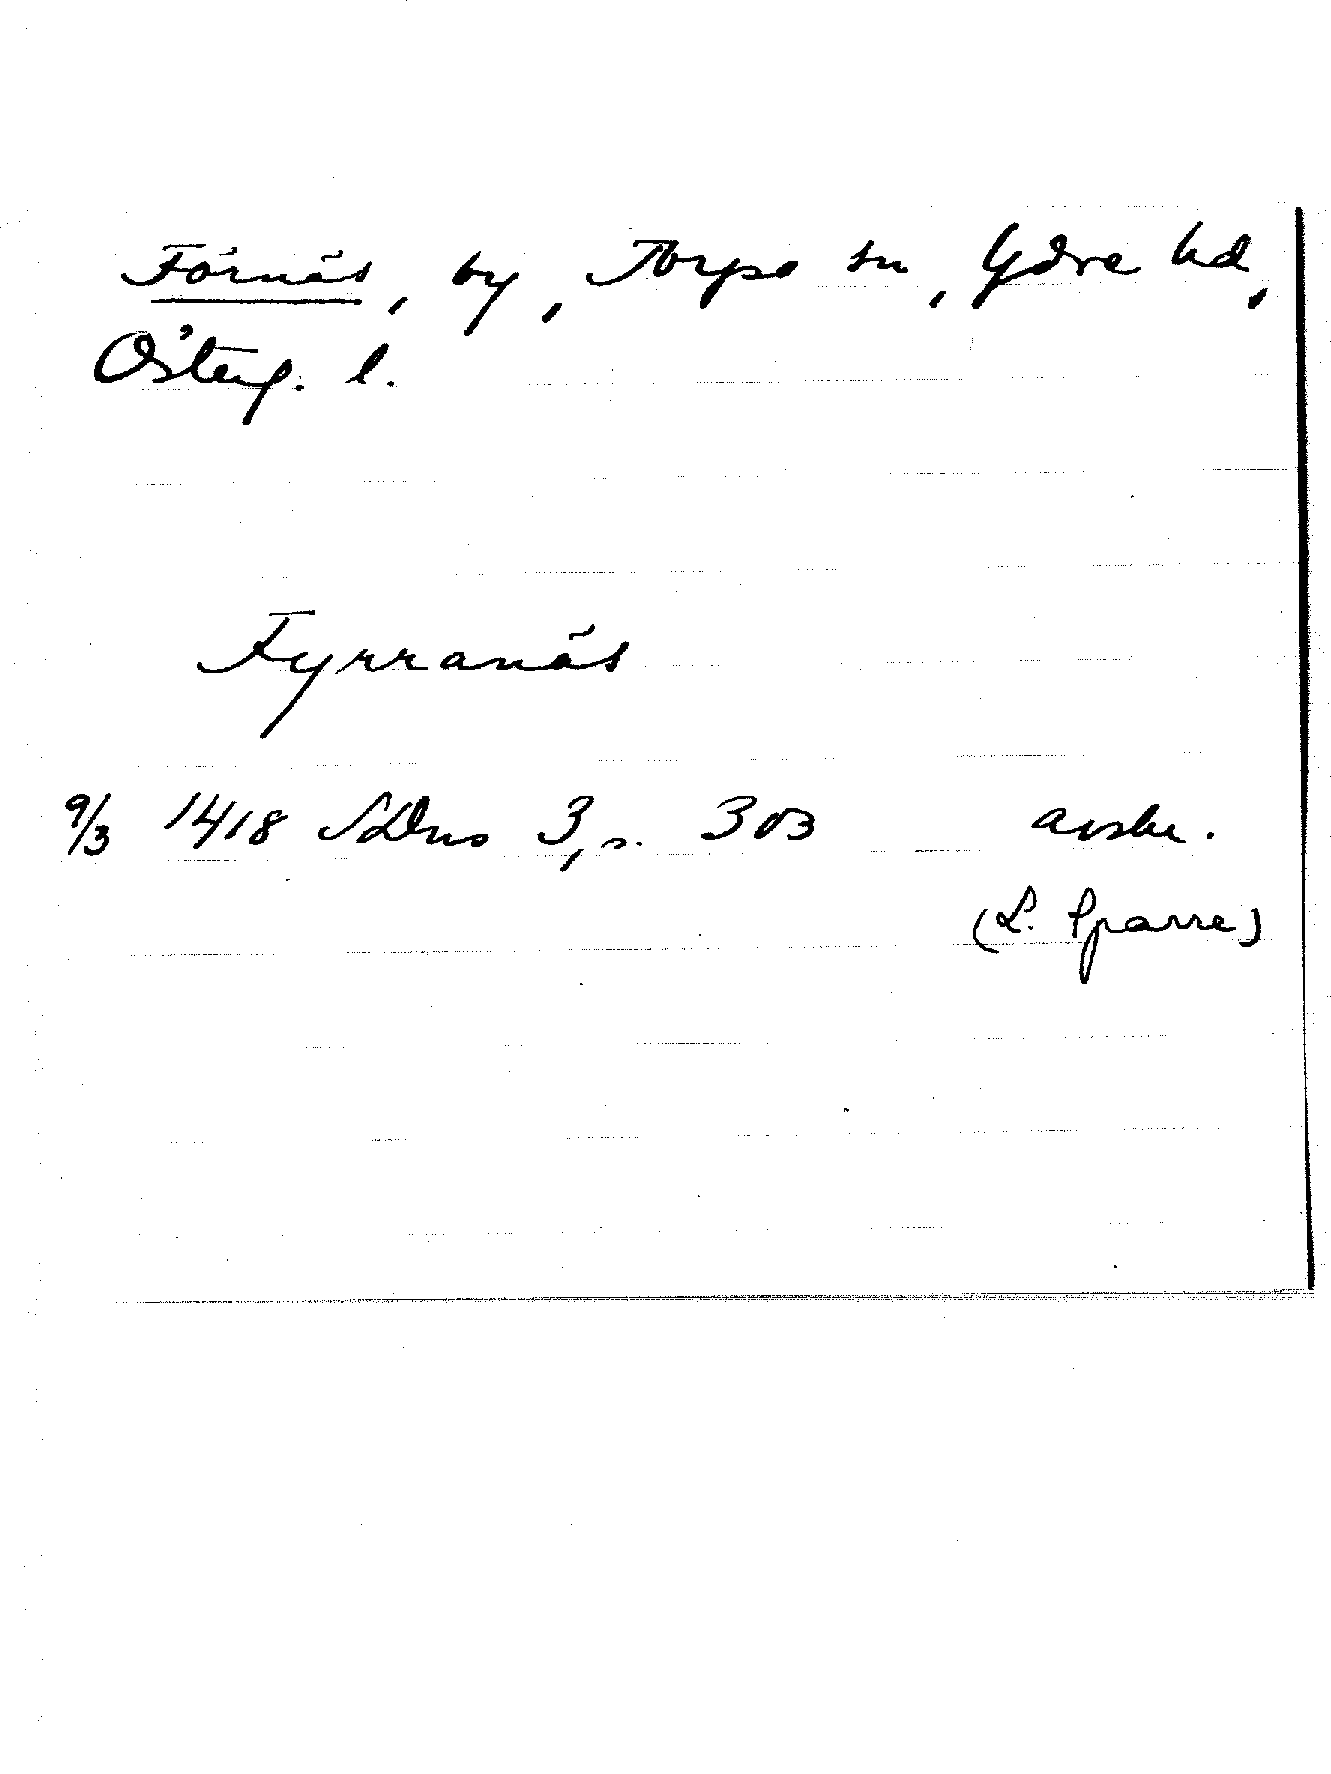 Förnäs, by, Torpa sn, Ydre hd,
Österg. l.
Fyrranäs
9/3 1418 SDns 3, s. 303 avskr.
(L. Sparre)